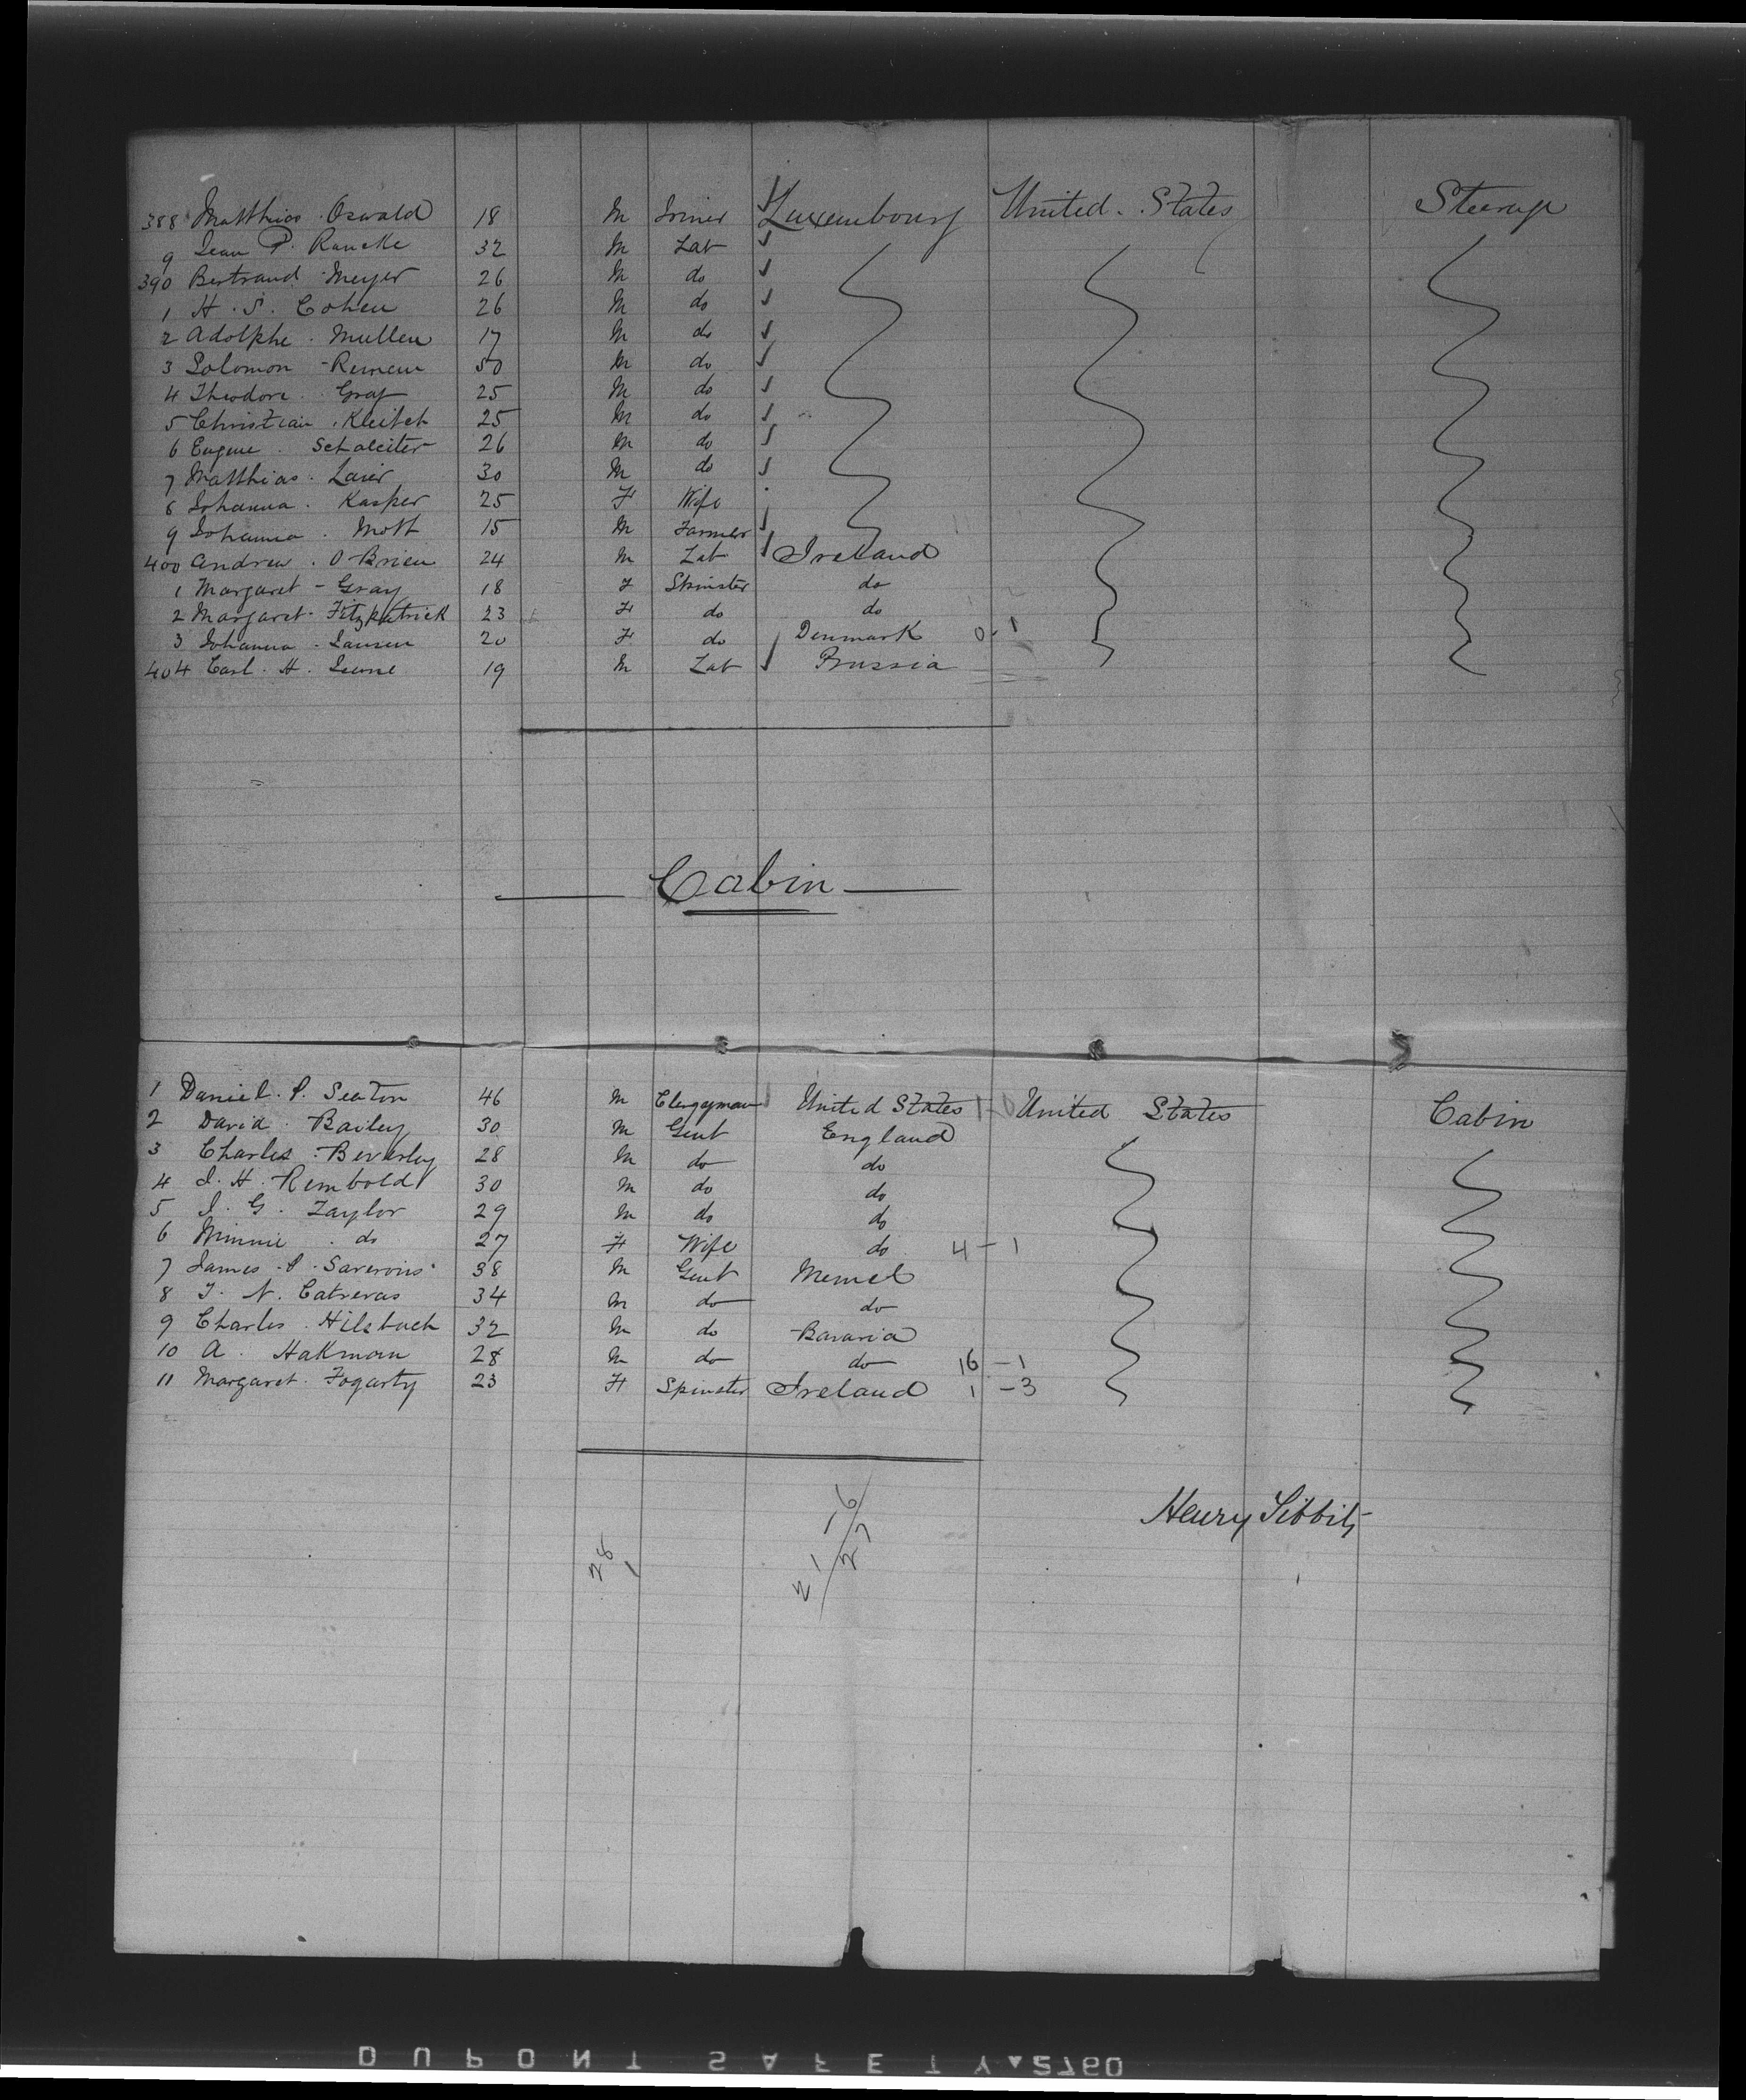 388 Matthias Oswald 18 M Joiner Luxembourg United States Steerage
9 Jean P. Rancke 32 M Lab
390 Bertrand Meyer 26 M do
1 H. S. Cohen 26 M do
2 Adolphe Mullen 17 M do
3 Solomon 50 M do
4 Theodore Graf 25 M do
5 Christian 25 M do
6 Eugene 26 M do
7 Matthias 30 M do
8 Johanna Kasper 25 F Wife
9 Johanna Mott 15 M Farmer
400 Andrew O Brien 24 M Lab Ireland
1 Margaret Gray 18 F Spinster do
2 Margaret Fitzkatrick 23 F do do
3 Johanna Jansen 20 F do Denmark 0-1
404 Carl H. 19 M Lab Prussia
Cabin
1 Daniel P. Seaton 46 M Clergyman United States 1-0 United States Cabin
2 David Bailey 30 M Gent England
3 Charles Beverley 28 M do do
4 J. H. Rembold 30 M do do
5 J. G. Taylor 29 M do do
6 Minnie do 27 F Wife do 4-1
7 James P. 38 M Gent Memel
8 J. N. Catreras 34 M do do
9 Charles Hilsbuch 32 M do Bavaria
10 A. Hakman 28 M do do 16-1
11 Margaret Fogarty 23 F Spinster Ireland 1-3
Henry Sibbit
28
1
21-6
27
DUPONT SAFETY 2760